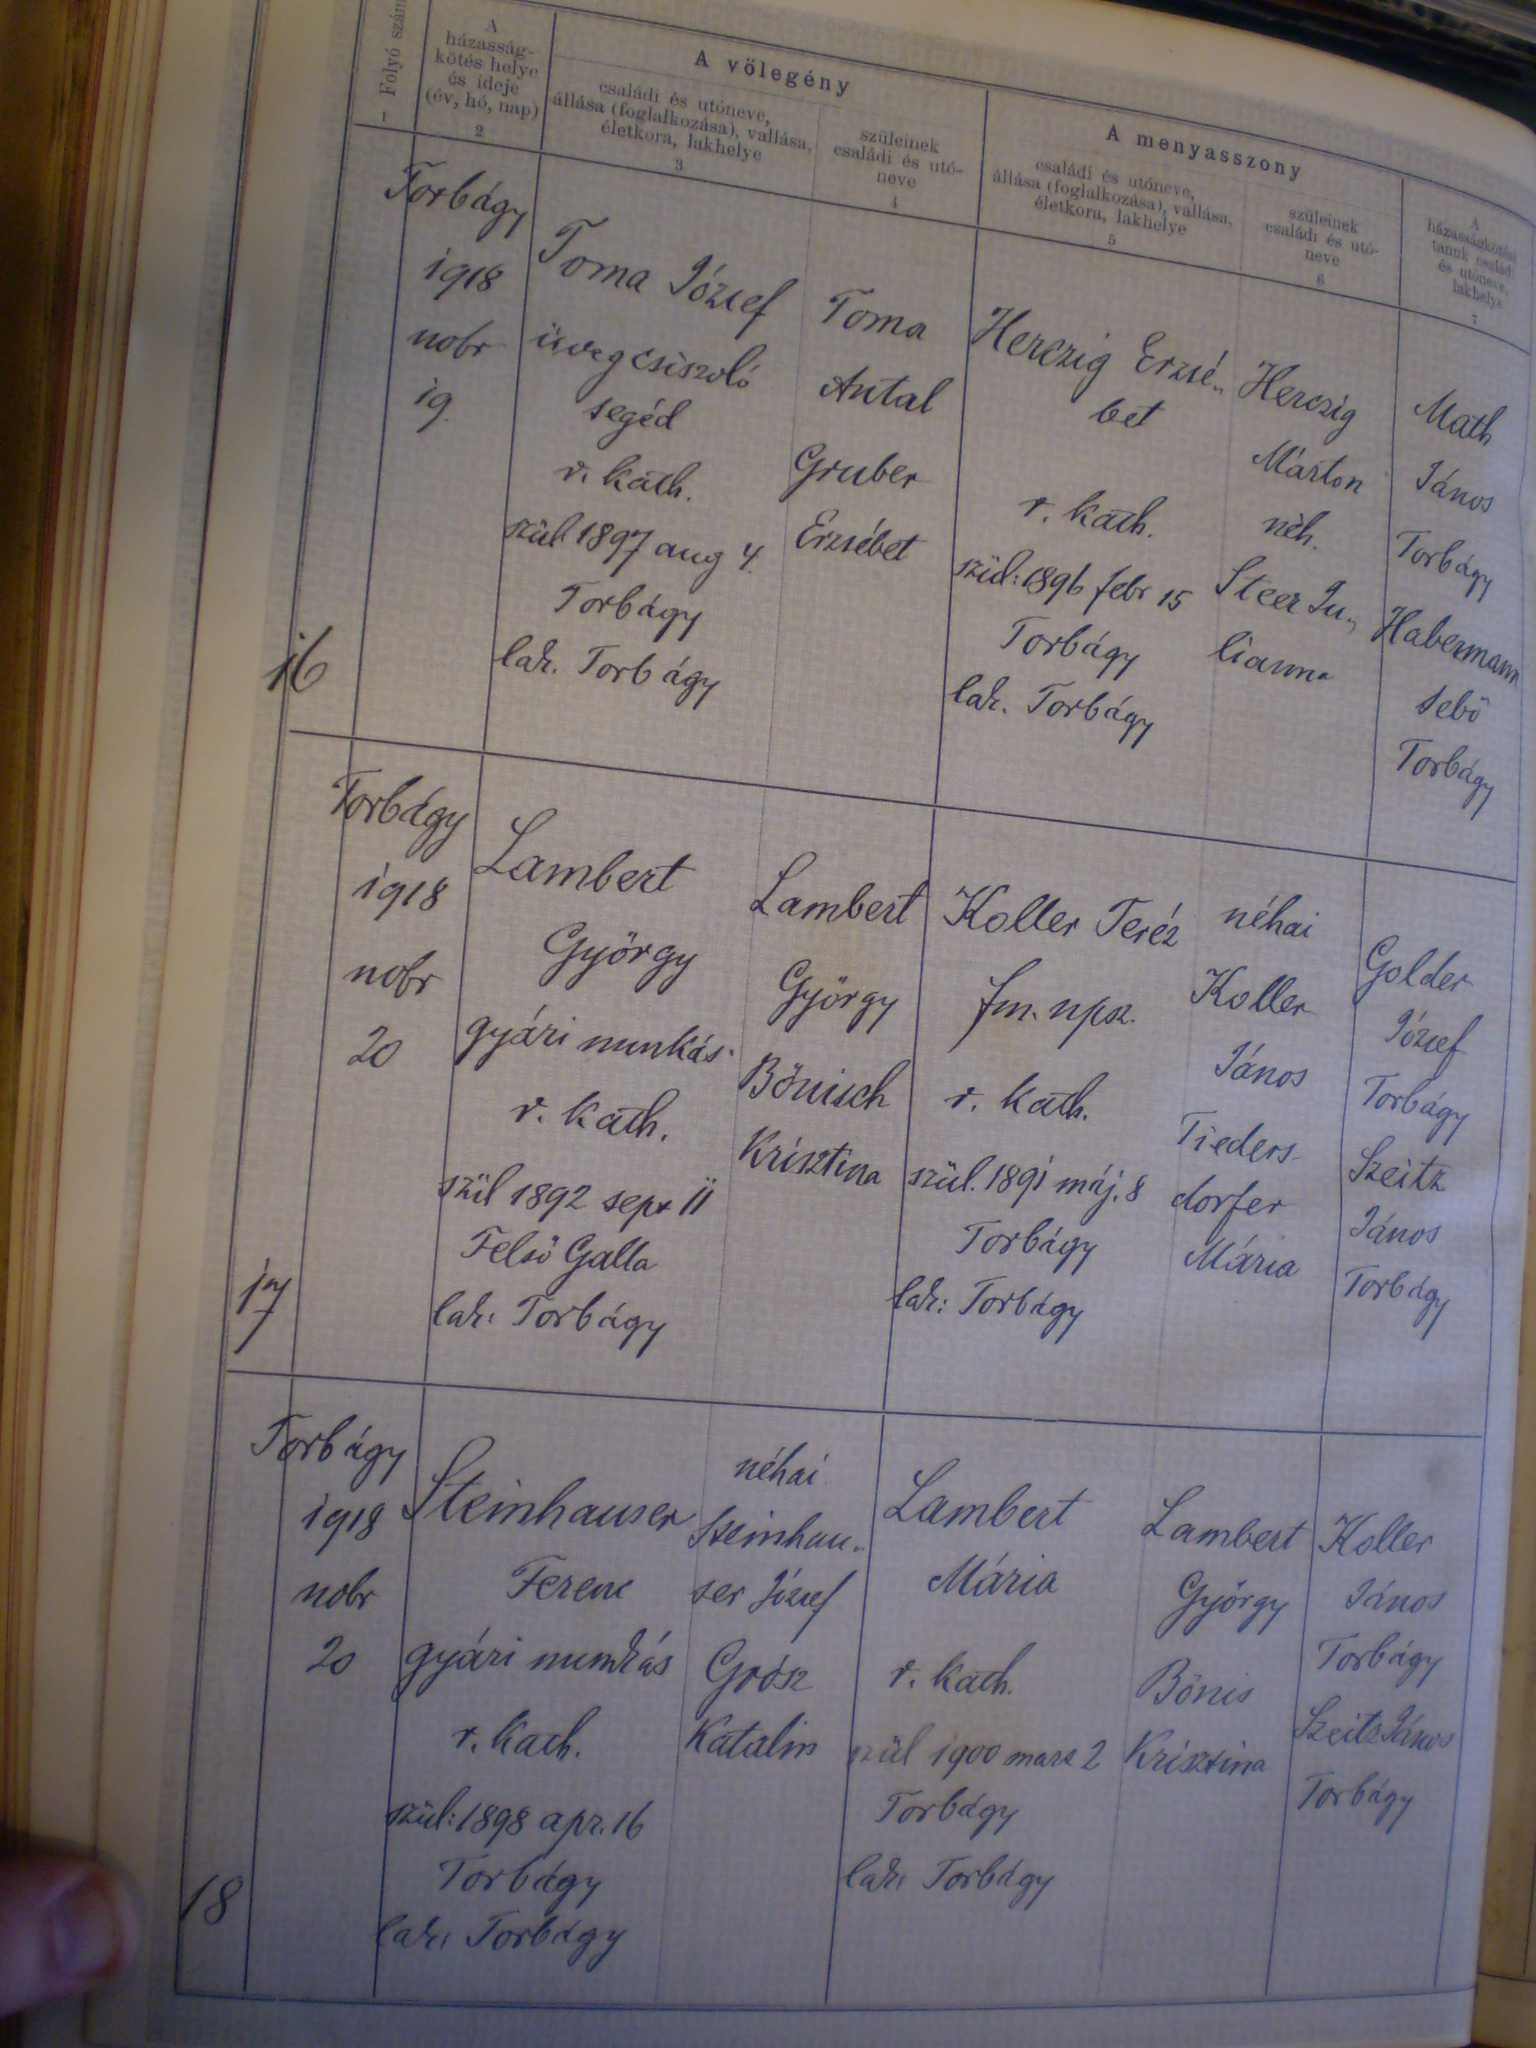 Folyó szám
1
A
házasság-
kötés helye
és ideje
(év, hó, nap)
2
A võlegény
családi és utóneve,
állása (foglalkozása), vallása,
életkora, lakhelye
3
szüleinek
családi és utó-
neve
4
A menyasszony
családi és utóneve,
állása (foglalkozása), vallása,
életkora, lakhelye
5
szüleinek
családi és utó-
neve
6
A
házasságkötési
tanuk családi
és utóneve,
lakhelye
7
16
Torbágy
1918
nobr
19.
Toma József
üvegcsiszoló
segéd
r. kath.
szül 1897 aug 4.
Torbágy
lak. Torbágy
Toma
Antal
Gruber
Erzsébet
Herczig Erzsé„
bet
r. kath.
szül: 1896 febr 15
Torbágy
lak. Torbágy
Herczig
Márton
néh.
Steer Ju„
lianna
Math
János
Torbágy
Habermann
Sebő
Torbágy
17
Torbágy
1918
nobr
20
Lambert
György
gyári munkás
r. kath.
szül 1892 sept 11
Felső Galla
lak: Torbágy
Lambert
György
Bönisch
Krisztina
Koller Teréz
fm. npsz.
r. kath.
szül. 1891 máj. 8
Torbágy
lak: Torbágy
néhai
Koller
János
Tieders-
dorfer
Mária
Golder
József
Torbágy
Szeitz
János
Torbágy
18
Torbágy
1918
nobr
20
Steinhauser
Ferenc
gyári munkás
r. kath.
szül: 1898 apr. 16
Torbágy
lak: Torbágy
néhai
Steinhau„
ser József
Grósz
Katalin
Lambert
Mária
r. kath.
szül 1900 marz 2
Torbágy
lak: Torbágy
Lambert
György
Bönis
Krisztina
Koller
János
Torbágy
Szeitz János
Torbágy